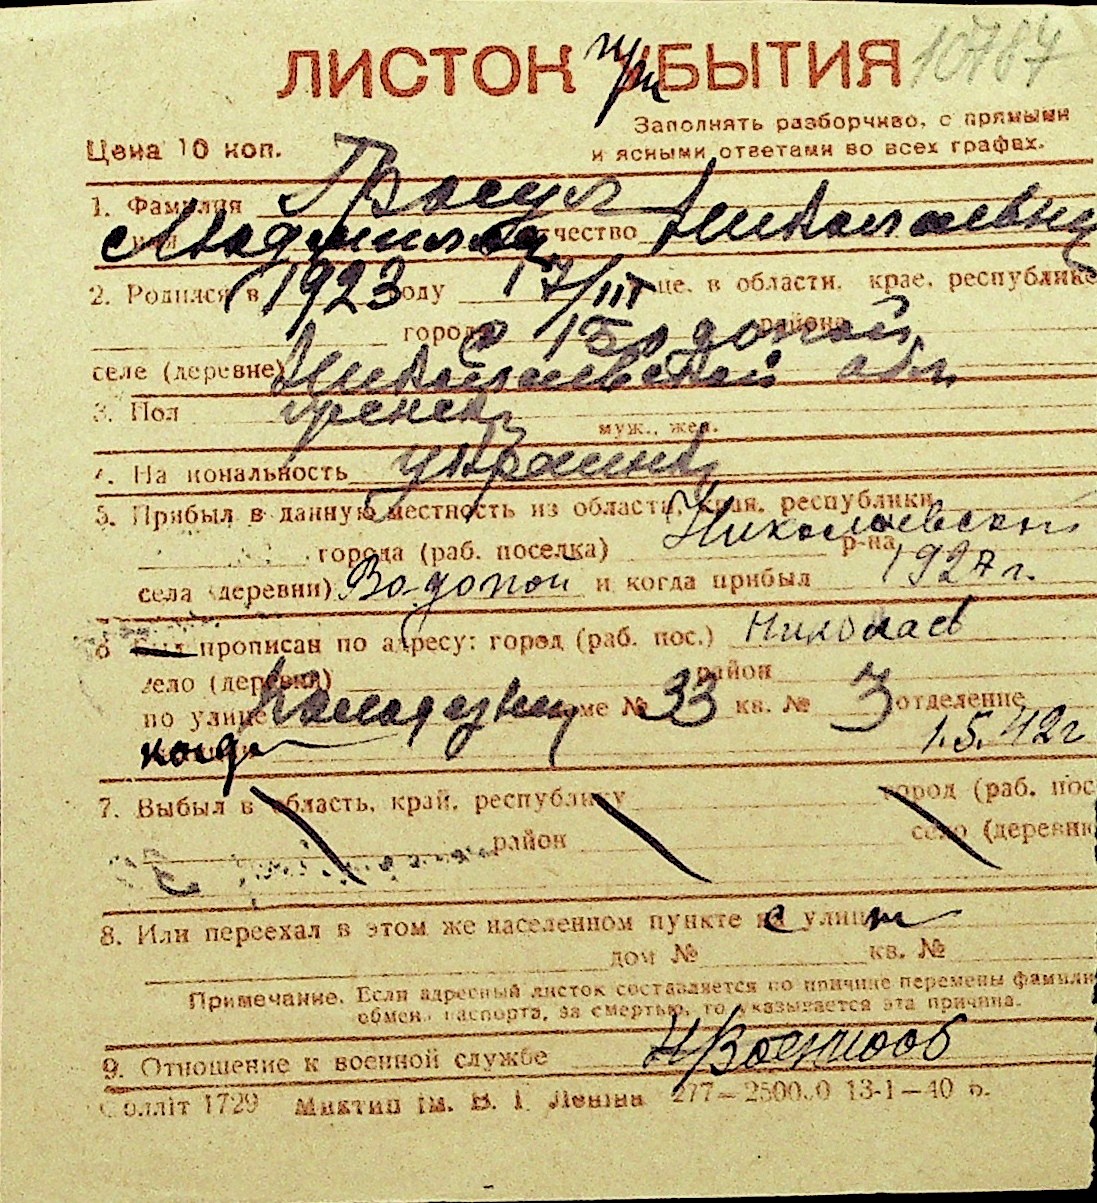 ЛИСТОК УБЫТИЯ
10787
Заполнять разборчиво, с прямыми
Цена 10 коп.
и ясными ответами во всех графах.
1. Фамилия
имя отчество Николаевна
2. Родился в 1923 году 17/III це. в области, крае, республике
города с Водопой района
селе (деревне) Николаевской обл
3. Пол женск
муж., жен.
4. На иональность украинк
5. Прибыл в данную местность из области, края, республики Николаевской
города (раб. поселка) р-на
села (деревни) Водопой и когда прибыл 1927 г.
6 Был прописан по адресу: город (раб. пос.) Николаев
село (деревня) район
по улице доме № 33 кв. № 3 отделение
когда 1.5.42 г
7. Выбыл в область, край, республику город (раб. пос
район село (деревню
8. Или переехал в этом же населенном пункте на улицу
дом № кв. №
Примечание. Если адресный листок составляется по причине перемены фамили
обмена паспорта, за смертью, то указывается эта причина.
9. Отношение к военной службе Н/Военнооб
Соллiт 1729 Миктип iм. В. I. Ленiна 277—25000 13-1—40 р.